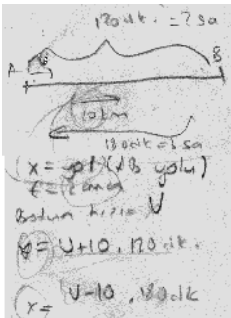 120 dk. = 2 sa
A B
10 km
180 dk = 3 sa
x = yol (AB yolu)
t = zaman
Botun hızı = V
x = V+10 . 120 dk.
x = V-10 . 180 dk